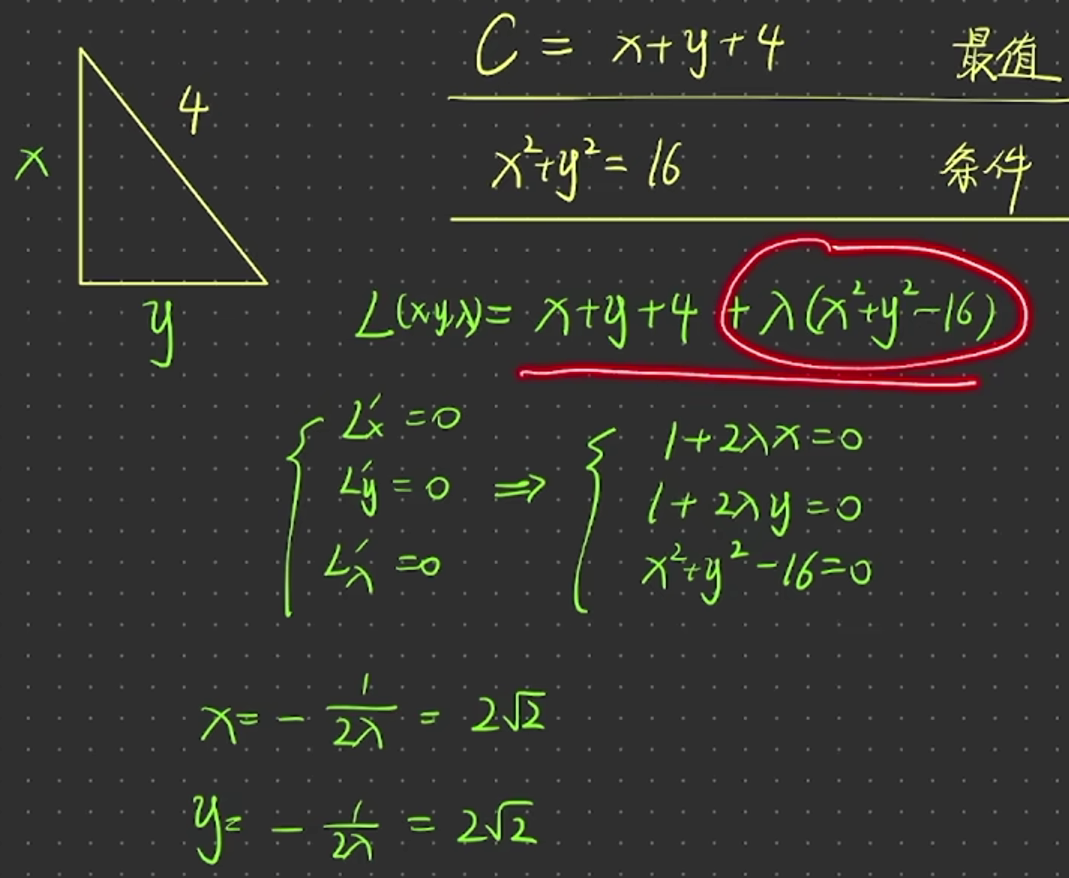 C = x+y+4 最值
4
x
x²+y²= 16 条件
y
L(x,y,λ)= x+y+4 +λ(x²+y²-16)
{ L'x =0
L'y = 0
L'λ =0
⇒
{ 1+2λx=0
1+2λy=0
x²+y²-16=0
x= - 1/2λ = 2√2
y= - 1/2λ = 2√2